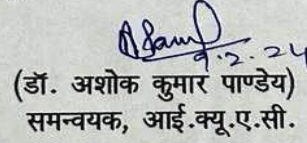 9.2.24
(डॉ. अशोक कुमार पाण्डेय)
समन्वयक, आई.क्यू.ए.सी.